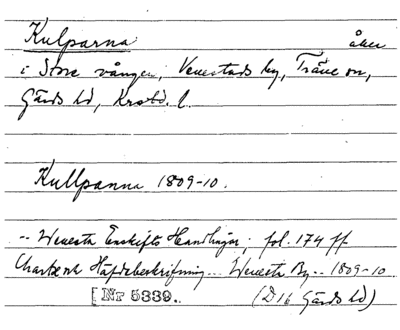 Kulparna åker
i Store vången, Venestads by, Träne sn,
Gärds hd, Krstd. l.
Kullpanna 1809-10.
-- Wenesta Enskifts Handlingar; fol. 174 ff
Charta och Häfdebeskrifning... Wenesta By-- 1809-10
[Nr 5339. (D16 Gärds hd)